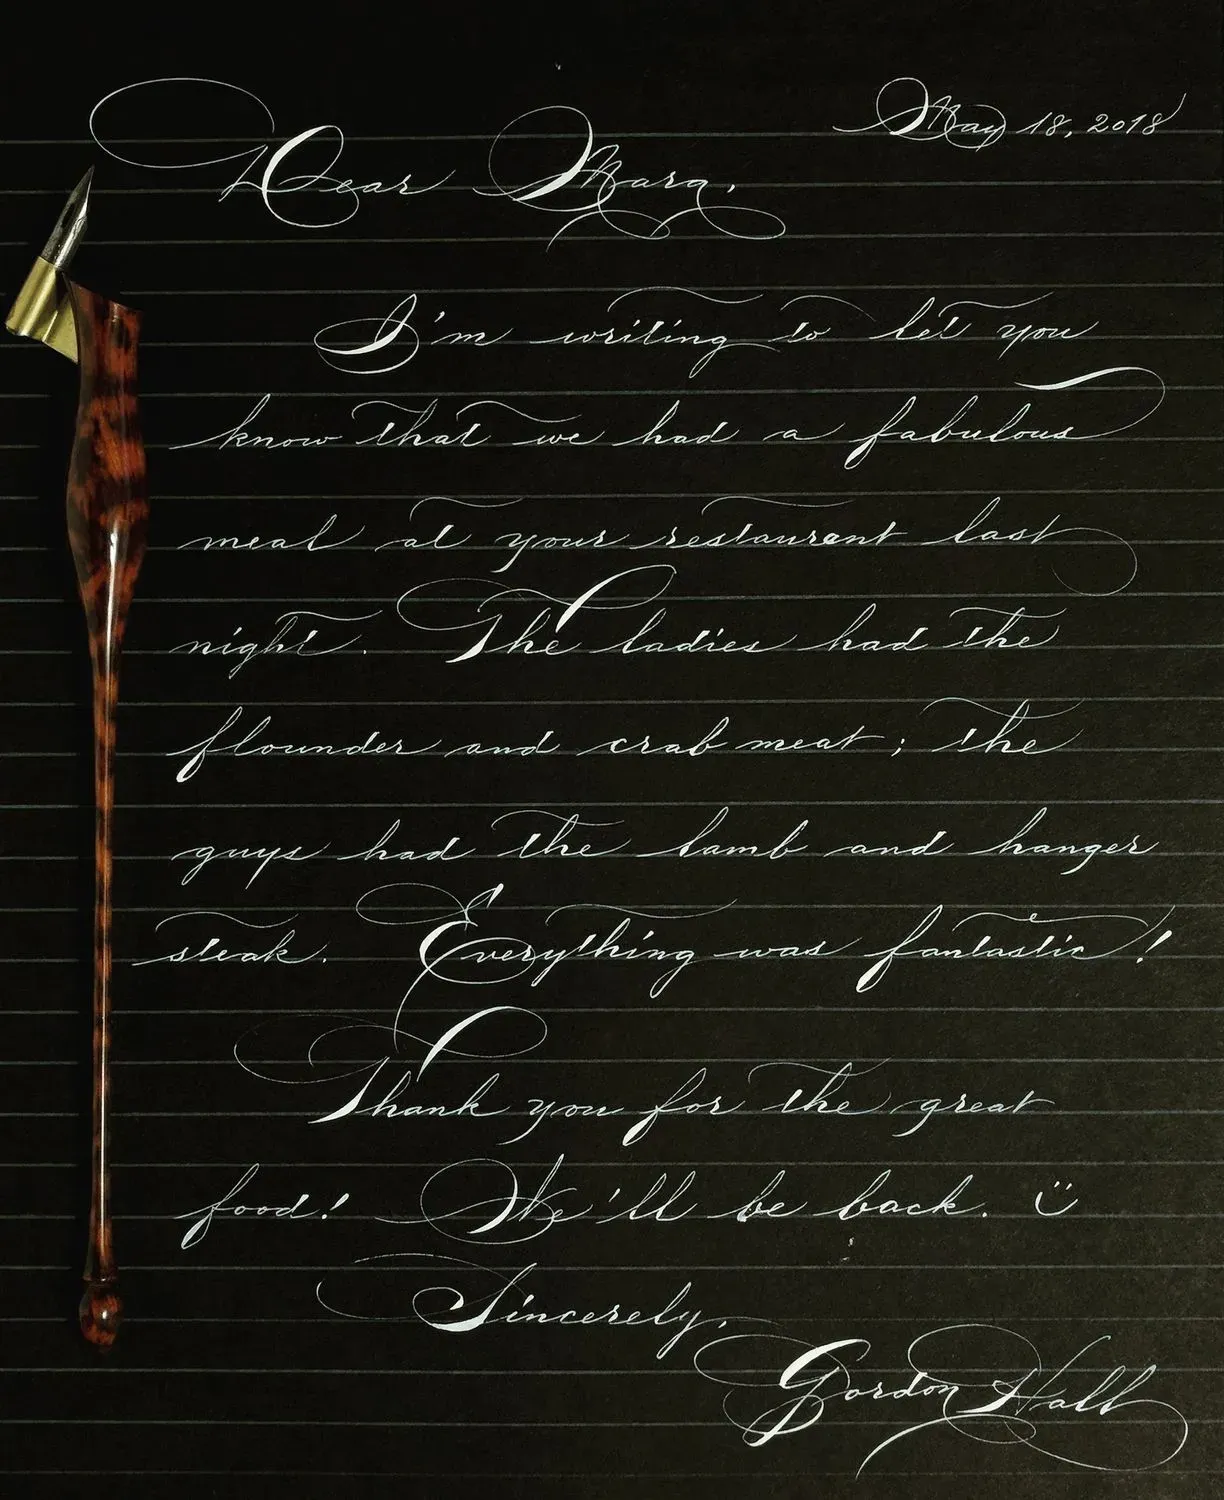 May 18, 2018
Dear Marg,
I'm writing to let you
know that we had a fabulous
meal at your restaurant last
night. The ladies had the
flounder and crab meat; the
guys had the lamb and hanger
steak. Everything was fantastic!
Thank you for the great
food! We'll be back. ü
Sincerely,
Gordon Hall